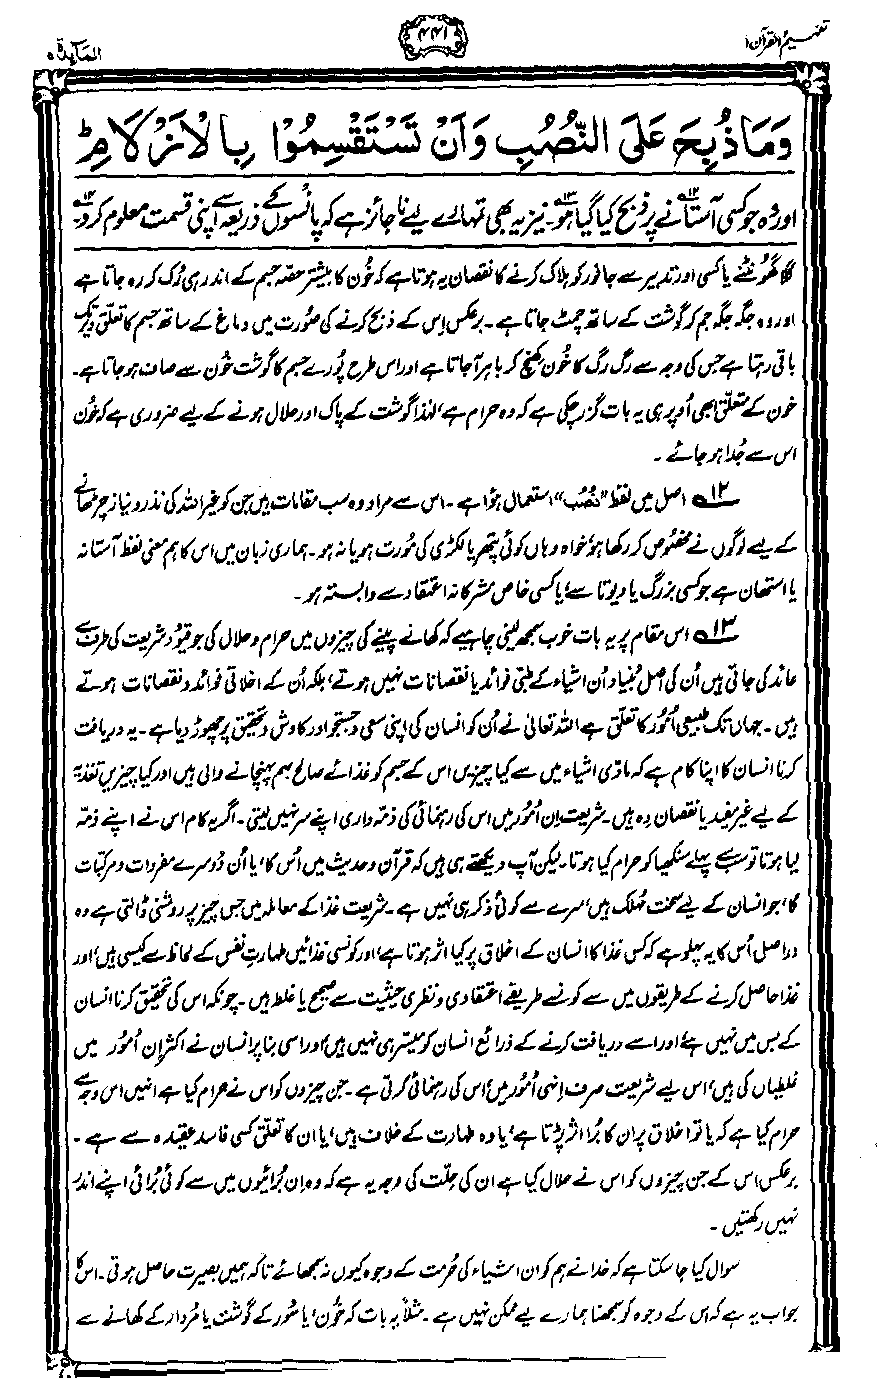 تفہیم القرآن ۱
۴۴۱
المآیدۃ ۵
وَمَا ذُبِحَ عَلَى النُّصُبِ وَاَنْ تَسْتَقْسِمُوْا بِالْاَزْلَامِ ؕ
اور وہ جو کسی آستانے ۱۲ پر ذبح کیا گیا ہو ۱۳۔ نیز یہ بھی تمہارے لیے ناجائز ہے کہ پانسوں کے ذریعہ سے اپنی قسمت معلوم کرو ۱۴
گلا گھونٹنے یا کسی اور تدبیر سے جانور کو ہلاک کرنے کا نقصان یہ ہوتا ہے کہ خُون کا بیشتر حصّہ جسم کے اندر ہی رُک کر رہ جاتا ہے
اور وہ جگہ جگہ جم کر گوشت کے ساتھ چمٹ جاتا ہے۔ برعکس اِس کے ذبح کرنے کی صُورت میں دماغ کے ساتھ جسم کا تعلق دیر تک
باقی رہتا ہے جس کی وجہ سے رگ رگ کا خُون کھِنچ کر باہر آجاتا ہے اور اس طرح پُورے جسم کا گوشت خُون سے صاف ہو جاتا ہے۔
خون کے متعلق ابھی اُوپر ہی یہ بات گزر چکی ہے کہ وہ حرام ہے، لہٰذا گوشت کے پاک اور حلال ہونے کے لیے ضروری ہے کہ خُون
اس سے جُدا ہو جائے۔
۱۲ اصل میں لفظ ”نُصُب“ استعمال ہؤا ہے۔ اس سے مراد وہ سب مقامات ہیں جن کو غیر اللہ کی نذر و نیاز چڑھانے
کے لیے لوگوں نے مخصُوص کر رکھا ہو، خواہ وہاں کوئی پتھر یا لکڑی کی مُورت ہو یا نہ ہو۔ ہماری زبان میں اس کا ہم معنی لفظ آستانہ
یا استھان ہے جو کسی بزرگ یا دیوتا سے، یا کسی خاص مشرکانہ اعتقاد سے وابستہ ہو۔
۱۳ اس مقام پر یہ بات خوب سمجھ لینی چاہیے کہ کھانے پینے کی چیزوں میں حرام و حلال کی جو قیُود شریعت کی طرف سے
عائد کی جاتی ہیں اُن کی اصل بُنیاد اُن اشیاء کے طبّی فوائد یا نقصانات نہیں ہوتے، بلکہ اُن کے اخلاقی فوائد و نقصانات ہوتے
ہیں۔ جہاں تک طبیعی اُمُور کا تعلق ہے اللہ تعالیٰ نے اُن کو انسان کی اپنی سعی و جستجو اور کاوش و تحقیق پر چھوڑ دیا ہے۔ یہ دریافت
کرنا انسان کا اپنا کام ہے کہ مادّی اشیاء میں سے کیا چیزیں اس کے جسم کو غذائے صالح بہم پہنچانے والی ہیں اور کیا چیزیں تغذیہ
کے لیے غیر مفید یا نقصان دہ ہیں۔ شریعت اِن اُمُور میں اس کی رہنمائی کی ذمّہ داری اپنے سر نہیں لیتی۔ اگر یہ کام اس نے اپنے ذمّہ
لیا ہوتا تو سب سے پہلے سنکھیا کو حرام کیا ہوتا۔ لیکن آپ دیکھتے ہی ہیں کہ قرآن و حدیث میں اُس کا، یا اُن دُوسرے مفردات و مرکّبات
کا، جو انسان کے لیے سخت مُہلک ہیں، سرے سے کوئی ذکر ہی نہیں ہے۔ شریعت غذا کے معاملہ میں جس چیز پر روشنی ڈالتی ہے وہ
دراصل اُس کا یہ پہلو ہے کہ کس غذا کا انسان کے اخلاق پر کیا اثر ہوتا ہے، اور کونسی غذائیں طہارتِ نفس کے لحاظ سے کیسی ہیں، اور
غذا حاصل کرنے کے طریقوں میں سے کونسے طریقے اعتقادی و نظری حیثیت سے صحیح یا غلط ہیں۔ چونکہ اس کی تحقیق کرنا انسان
کے بس میں نہیں ہے، اور اسے دریافت کرنے کے ذرائع انسان کو میسّر ہی نہیں ہیں، اور اسی بنا پر انسان نے اکثر اِن اُمُور میں
غلطیاں کی ہیں، اس لیے شریعت صرف اِنہی اُمُور میں اُس کی رہنمائی کرتی ہے۔ جن چیزوں کو اس نے حرام کیا ہے انہیں اس وجہ سے
حرام کیا ہے کہ یا تو اخلاق پر ان کا بُرا اثر پڑتا ہے، یا وہ طہارت کے خلاف ہیں، یا ان کا تعلق کسی فاسد عقیدہ سے ہے۔
برعکس اس کے جن چیزوں کو اس نے حلال کیا ہے ان کی حِلّت کی وجہ یہ ہے کہ وہ اِن بُرائیوں میں سے کوئی بُرائی اپنے اندر
نہیں رکھتیں۔
سوال کیا جا سکتا ہے کہ خدا نے ہم کو ان اشیاء کی حُرمت کے وجوہ کیوں نہ سمجھائے تاکہ ہمیں بصیرت حاصل ہوتی۔ اس کا
جواب یہ ہے کہ اس کے وجوہ کو سمجھنا ہمارے لیے ممکن نہیں ہے۔ مثلاً یہ بات کہ خُون، یا سُور کے گوشت یا مُردار کے کھانے سے